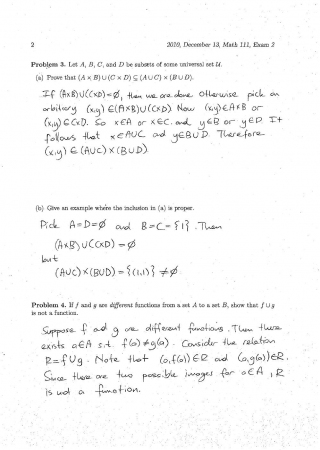 2 2010, December 13, Math 111, Exam 2
Problem 3. Let A, B, C, and D be subsets of some universal set U.
(a) Prove that (A × B) ∪ (C × D) ⊆ (A ∪ C) × (B ∪ D).
If (A×B)∪(C×D)=∅, then we are done. Otherwise pick an
arbitrary (x,y)∈(A×B)∪(C×D). Now (x,y)∈A×B or
(x,y)∈C×D. So x∈A or x∈C. and y∈B or y∈D. It
follows that x∈A∪C and y∈B∪D. Therefore
(x,y)∈(A∪C)×(B∪D).
(b) Give an example where the inclusion in (a) is proper.
Pick A=D=∅ and B=C={1}. Then
(A×B)∪(C×D)=∅
but
(A∪C)×(B∪D)={(1,1)}≠∅
Problem 4. If f and g are different functions from a set A to a set B, show that f ∪ g
is not a function.
Suppose f and g are different functions. Then there
exists a∈A s.t. f(a)≠g(a). Consider the relation
R=f∪g. Note that (a,f(a))∈R and (a,g(a))∈R.
Since there are two possible images for a∈A, R
is not a function.